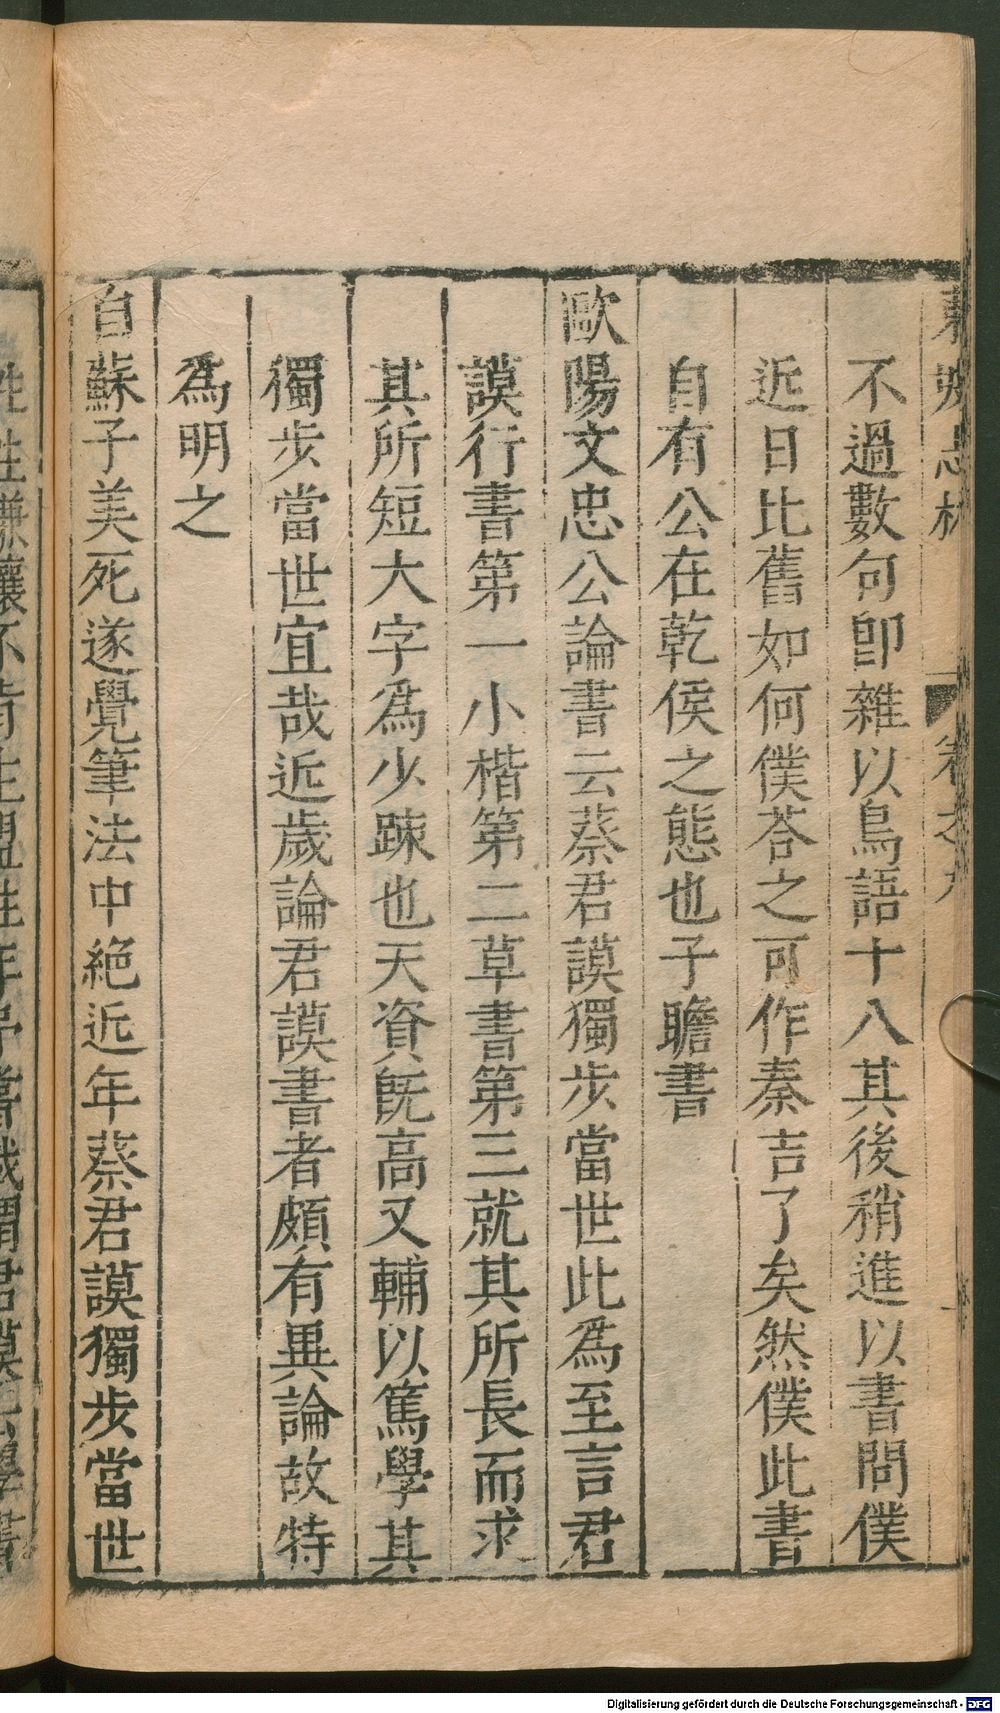 東坡志林 卷之九
不過數句卽雜以鳥語十八其後稍進以書問僕
近日比舊如何僕荅之可作秦吉了矣然僕此書
自有公在乾侯之態也子瞻書
歐陽文忠公論書云蔡君謨獨步當世此爲至言君
謨行書第一小楷第二草書第三就其所長而求
其所短大字爲少踈也天資旣高又輔以篤學其
獨步當世宜哉近歲論君謨書者頗有異論故特
爲明之
自蘇子美死遂覺筆法中絕近年蔡君謨獨步當世
Digitalisierung gefördert durch die Deutsche Forschungsgemeinschaft - DFG